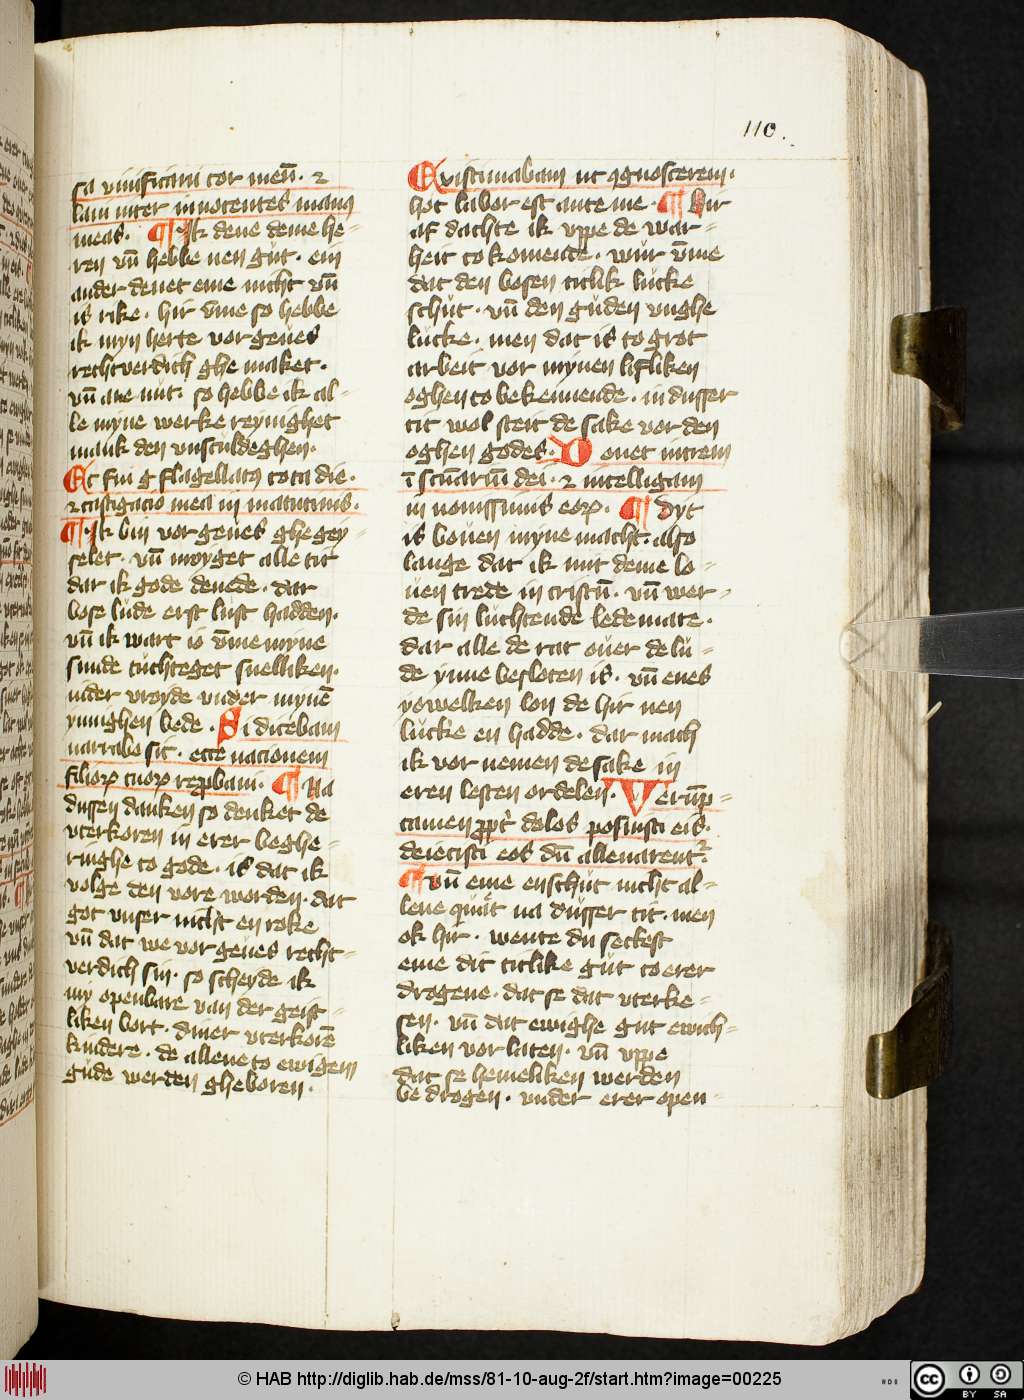 110.
sa viuificaui cor meū. ⁊
laui inter innocentes manꝰ
meas. ¶ Ik dene deme he-
ren vn̄ hebbe nen gůt. ein
ander denet eme nicht vn̄
is rike. hir v̄me so hebbe
ik myn herte vorgeues
rechtverdich ghe maket.
vn̄ ane nůt. so hebbe ik al-
le myne werke reynighet
mank den vnsculdeghen.
Et fui flagellatꝰ tota die.
⁊ castigacio mea in matutinis.
¶ Ik bin vorgeues ghegey-
selet. vn̄ moyget alle tit
dar ik gode denede. dar
bose lude erst lust hadden.
vn̄ ik wart io v̄me myne
sunde tuchteget snelliken.
vnder myne
ynnighen bede. Si dicebam
narrabo sic. ecce nacionem
filioꝝ tuoꝝ reꝓbaui. ¶ Na
dussen danken so denket de
vterkoren in erer beghe-
ringhe to gode. is dat ik
volge den vore worden. dat
got vnser nicht en roke
vn̄ dat we vorgeues recht-
verdich sin. so scheyde ik
my openbare van der geist-
liken bort. diner vterkorē
kindere. de allene to ewigem
gude werden gheboren.
Existimabam ut ꝯgnoscerem.
hoc labor est ante me. ¶ Hir
af dachte ik vppe de war-
heit to komende. wur v̄me
dat den bosen titlik lucke
schut. vn̄ den guden vnghe
lucke. men dat is to grot
arbeit vor mynen lifliken
oghen to bekennende. in dusser
tit wol steit de sake vor den
oghen godes. Donec intrem
ī scūariū dei. ⁊ intelligam
in nouissimis eoꝝ. ¶ Dyt
is bouen myne macht. also
lange dat ik mit deme lo-
uen trede in cristū. vn̄ wer-
de sin luchtende ledemate.
dar alle de rat ouer de lu-
de ynne besloten is. vn̄ enes
yowelken lon de hir nen
lucke en hadde. dar mach
ik vor nemen de sake in
eren lesten ordelen. Verūp-
tamen ꝓpt̄ dolos posuisti eis.
deiecisti eos dū alleuarentᷣ.
¶ Vn̄ eme enschut nicht al-
lene quat na dusser tit. men
ok hir. wente du seckest
eme dit titlike gut to erer
drogene. dat se dat vterke-
sen. vn̄ dat ewighe gut ewich-
liken vorlaten. vn̄ vppe
dat se hemeliken werden
bedrogen. vnder erer open-
© HAB http://diglib.hab.de/mss/81-10-aug-2f/start.htm?image=00225
BY SA